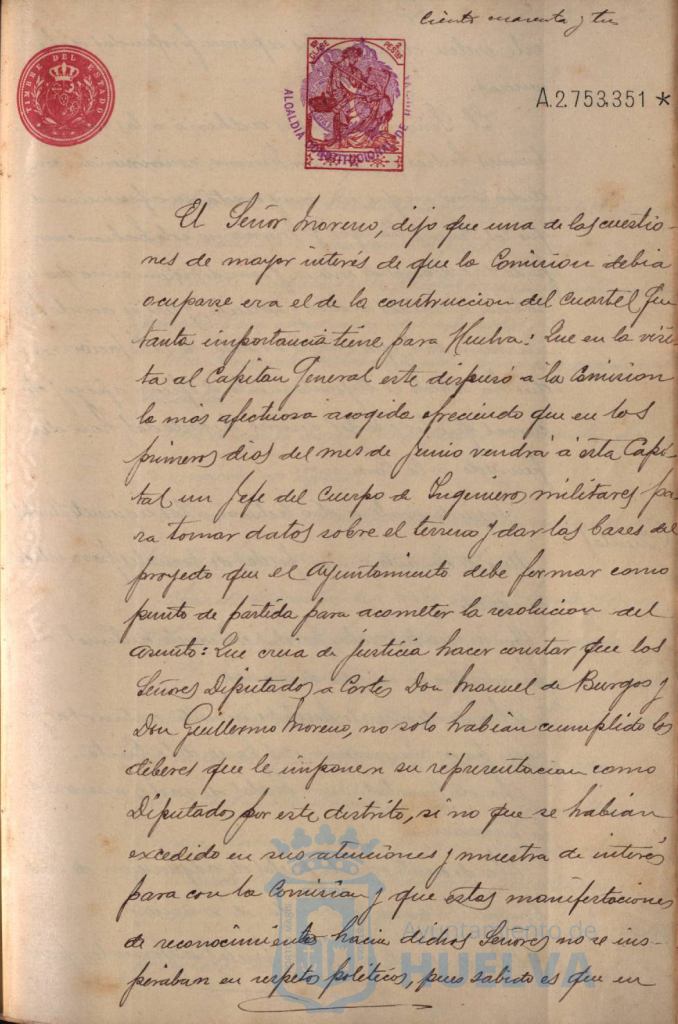 Ciento cuarenta y tres
TIMBRE DEL ESTADO
10 CLASE 2 PESETAS
ALCALDIA CONSTITUCIONAL DE
A.2.753.351 *
El Señor Moreno, dijo que una de las cuestio-
nes de mayor interés de que la Comision debia
ocuparse era el de la construccion del Cuartel que
tanta importancia tiene para Huelva: Que en la visi-
ta al Capitan General este dispusó a la Comision
la más afectuosa acogida ofreciendo que en los
primeros dias del mes de Junio vendrá á esta Capi-
tal un Jefe del Cuerpo de Ingenieros militares pa-
ra tomar datos sobre el terreno y dar las bases del
proyecto que el Ayuntamiento debe formar como
punto de partida para acometer la resolucion del
asunto: Que creia de justicia hacer constar que los
Señores Diputados a Cortes Don Manuel de Burgos y
Don Guillermo Moreno, no solo habian cumplido los
deberes que le imponen su representacion como
Diputados por este distrito, si no que se habian
excedido en sus atenciones y muestra de interés
para con la Comisión y que estas manifestaciones
de reconocimiento hacia dichos Señores no se ins-
piraban en respetos políticos, pues sabido es que en
Ayuntamiento de
HUELVA